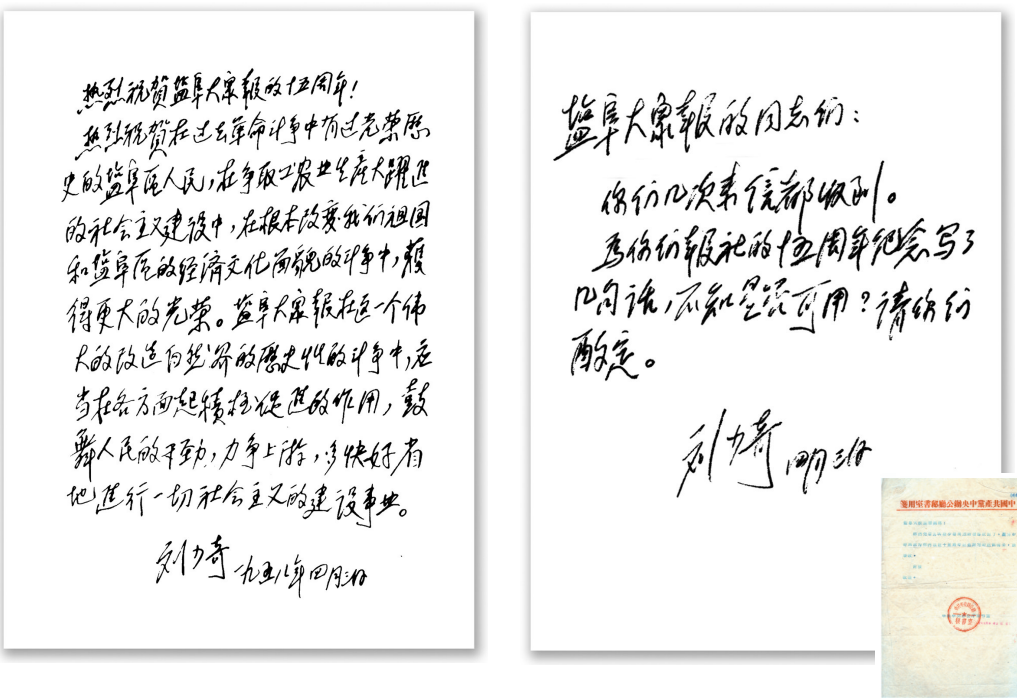 热烈祝賀盐阜大衆報的十五周年！
热烈祝賀在过去革命斗争中有过光荣歷
史的盐阜區人民，在争取工农业生産大躍進
的社会主义建设中，在根本改变我们祖国
和盐阜區的经済文化面貌的斗争中，獲
得更大的光荣。盐阜大衆報在这一个伟
大的改造自然界的歷史性的斗争中，应
当在各方面起積极促進的作用，鼓
舞人民的干劲，力争上游，多快好省
地進行一切社会主义的建设事业。
刘少奇 一九五八年四月三日
盐阜大衆報的同志们：
你们几次来信都收到。
为你们報社的十五周年纪念写了
几句话，不知是否可用？请你们
酌定。
刘少奇 四月三日
箋用室書部廳公辦央中黨產共國中